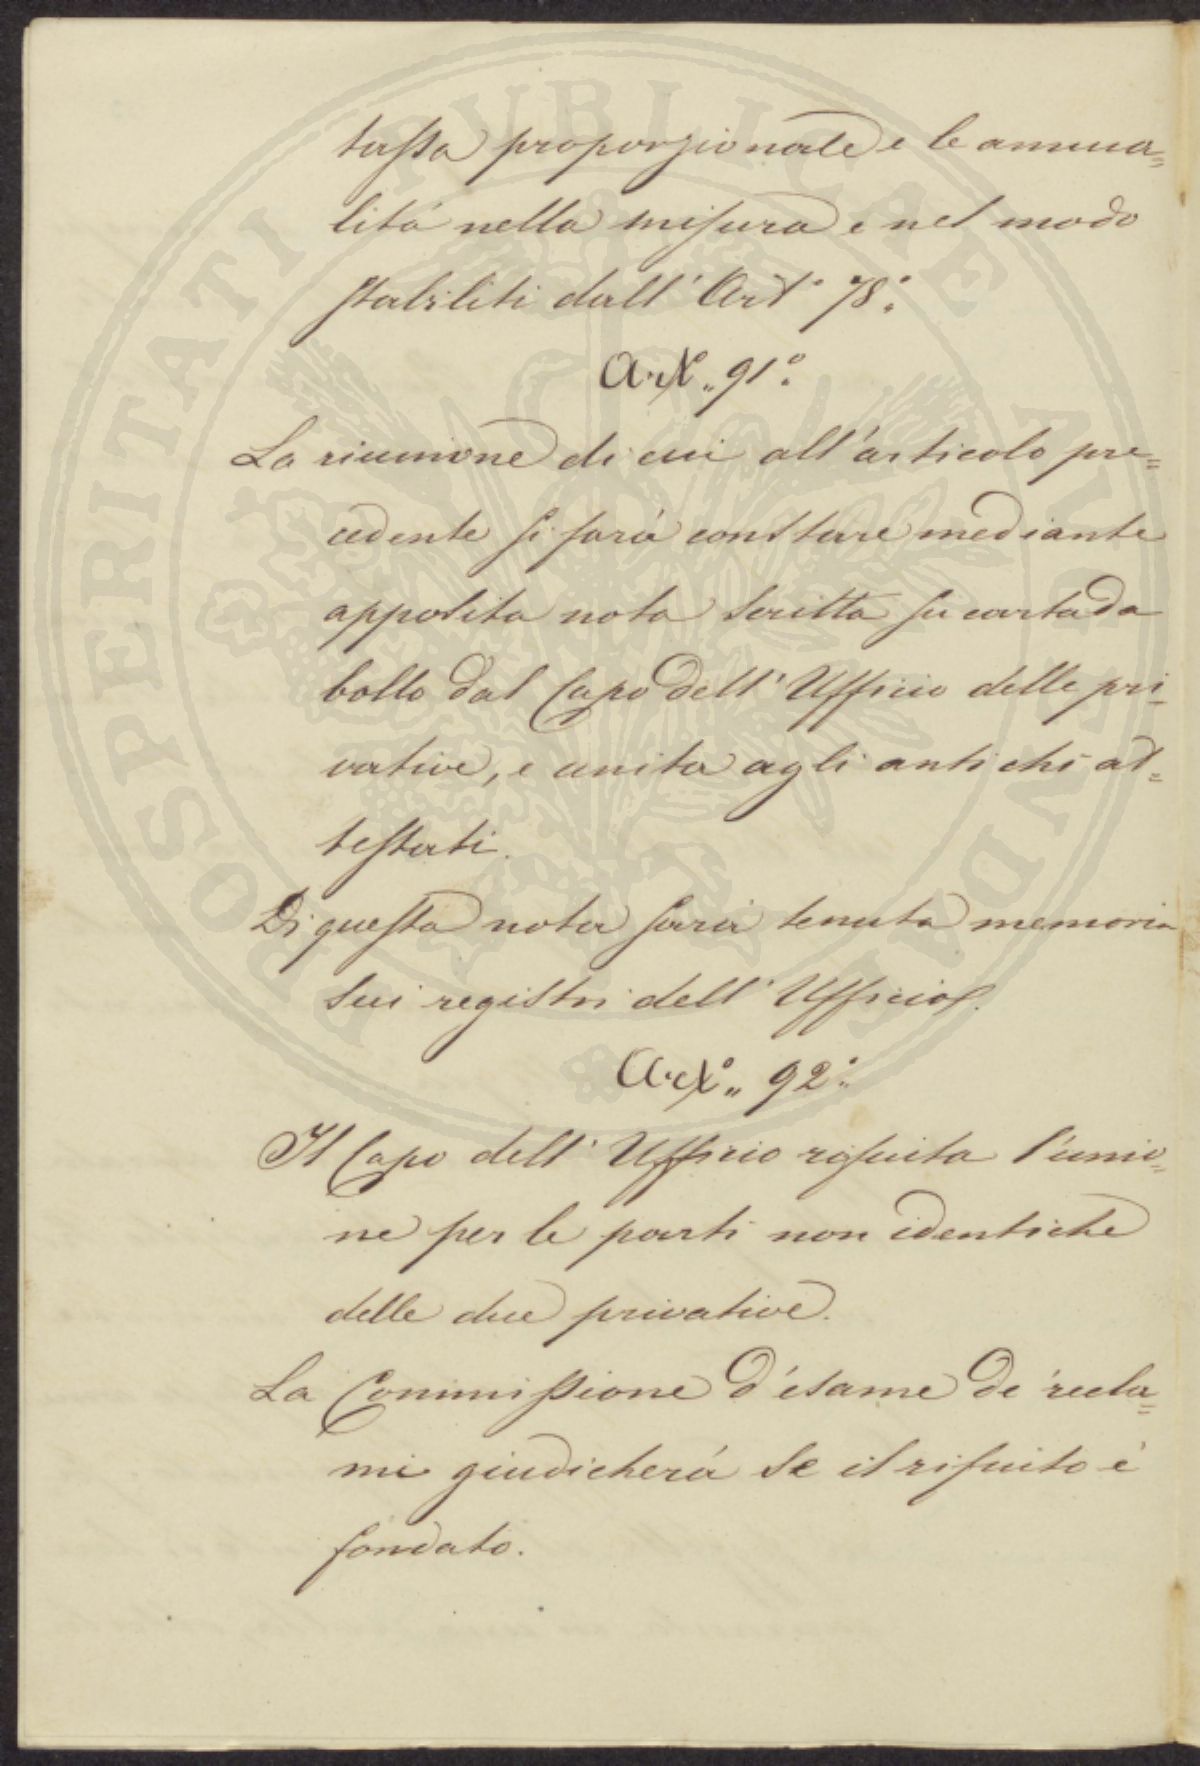 tassa proporzionale e le annua=
lità nella misura e nel modo
stabiliti dall'Art.° 78.°
Art.° 91.°
La riunione di cui all'articolo pre=
cedente si farà constare mediante
apposita nota scritta su carta da
bollo dal Capo dell'Ufficio delle pri=
vative, e unita agli antichi at=
testati.
Di questa nota sarà tenuta memoria
sui registri dell'Ufficio.
Art.° 92.°
Il Capo dell'Ufficio rifiuta l'unio=
ne per le parti non identiche
delle due privative.
La Commissione d'esame de' recla=
mi giudicherà se il rifiuto è
fondato.
PROSPERITATI PUBLICAE AUGENDAE